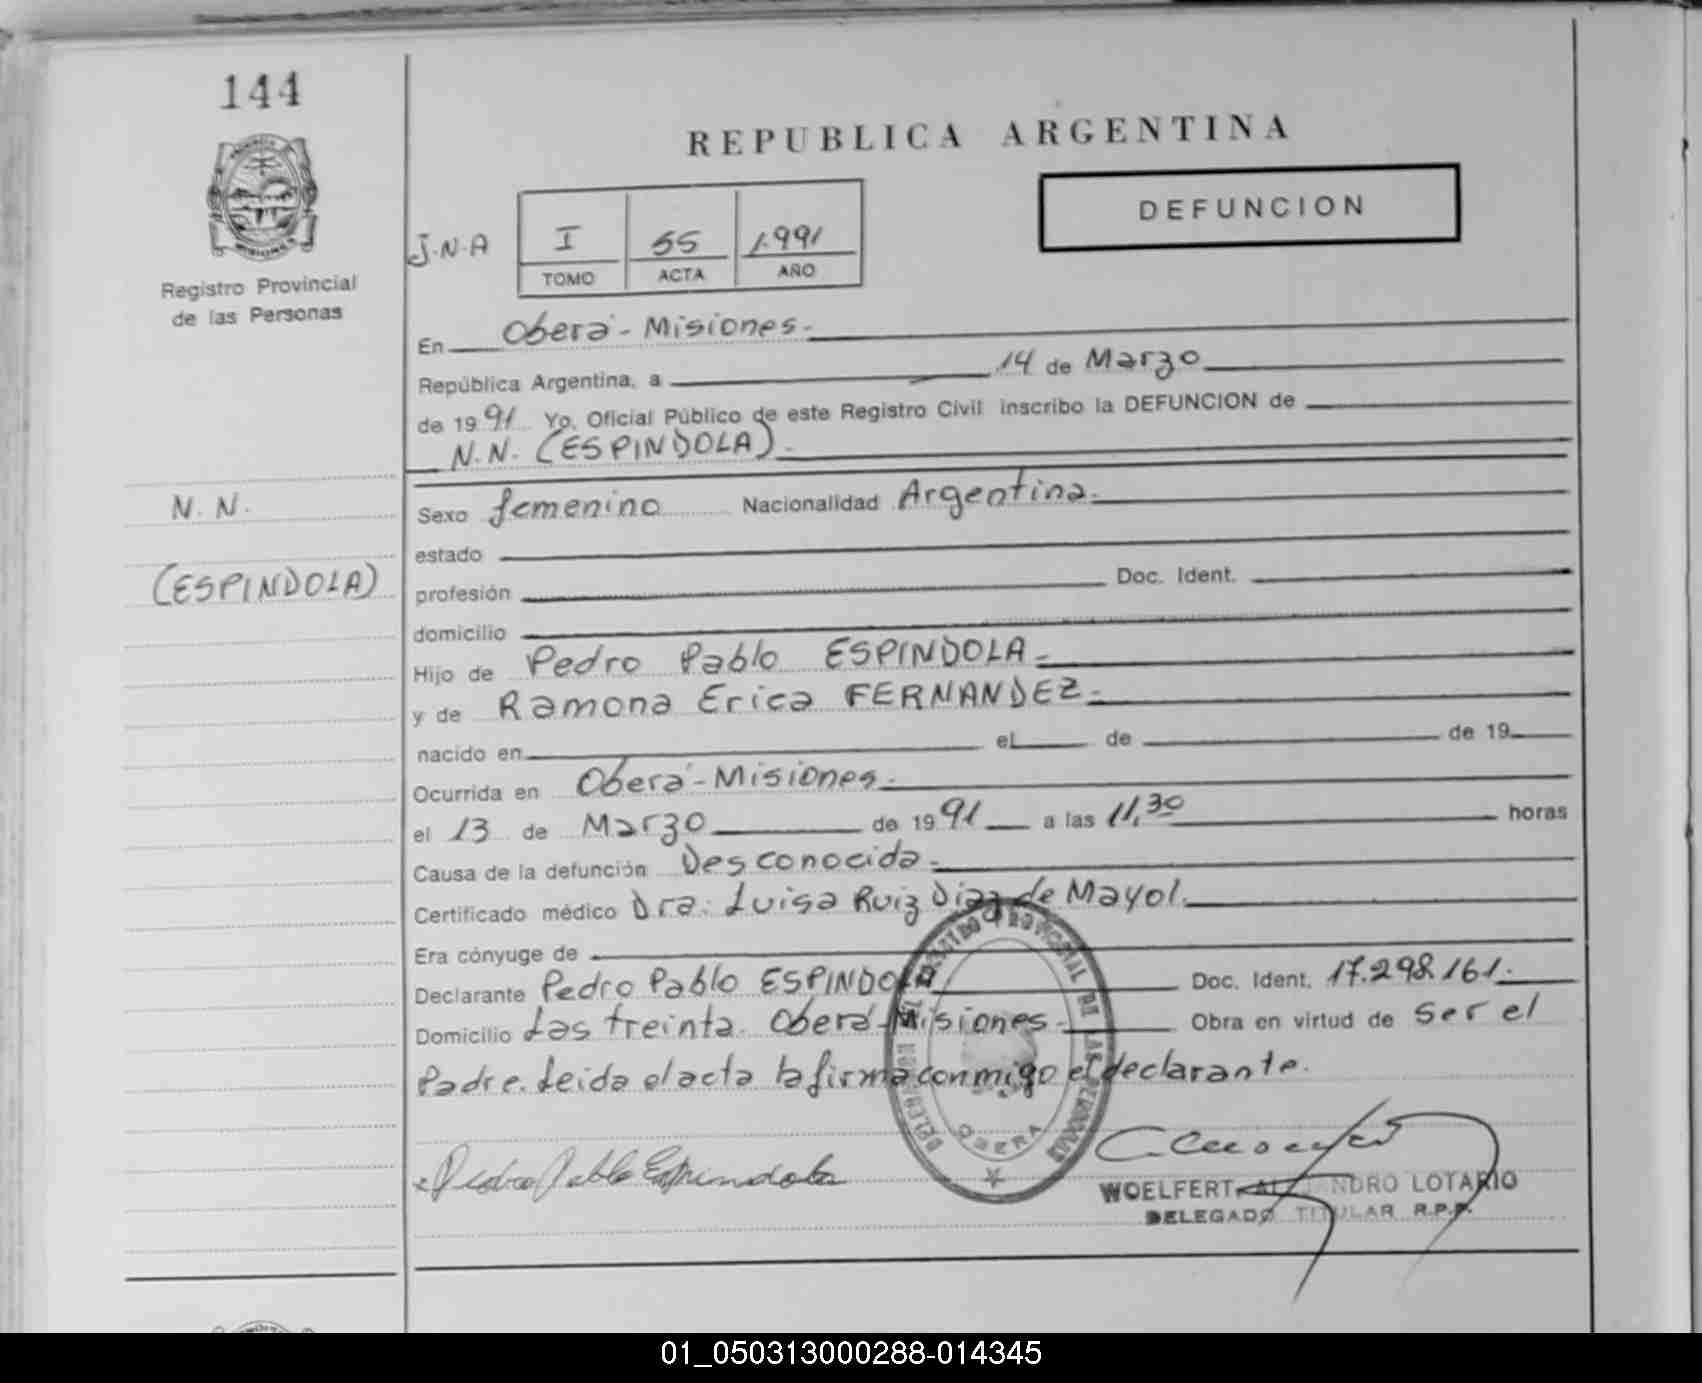 144
REPUBLICA ARGENTINA
DEFUNCION
J.N.A
I 55 1.991
TOMO ACTA AÑO
Registro Provincial
de las Personas
En Oberá - Misiones.
República Argentina, a 14 de Marzo
de 1991 Yo, Oficial Público de este Registro Civil inscribo la DEFUNCION de
N.N. (ESPINDOLA).
N. N.
(ESPINDOLA)
Sexo femenino Nacionalidad Argentina.
estado
profesión Doc. Ident.
domicilio
Hijo de Pedro Pablo ESPINDOLA.
y de Ramona Erica FERNANDEZ.
nacido en el de de 19
Ocurrida en Oberá - Misiones.
el 13 de Marzo de 1991 a las 11,30 horas
Causa de la defunción Desconocida.
Certificado médico Dra: Luisa Ruiz Diaz de Mayol.
Era cónyuge de
Declarante Pedro Pablo ESPINDOLA Doc. Ident. 17.298.161.
Domicilio Las treinta. Oberá - Misiones. Obra en virtud de ser el
Padre. Leida el acta la firma conmigo el declarante.
Pedro Pablo Espindola
OBERA
WOELFERT, ALEJANDRO LOTARIO
DELEGADO TITULAR R.P.P.
01_050313000288-014345